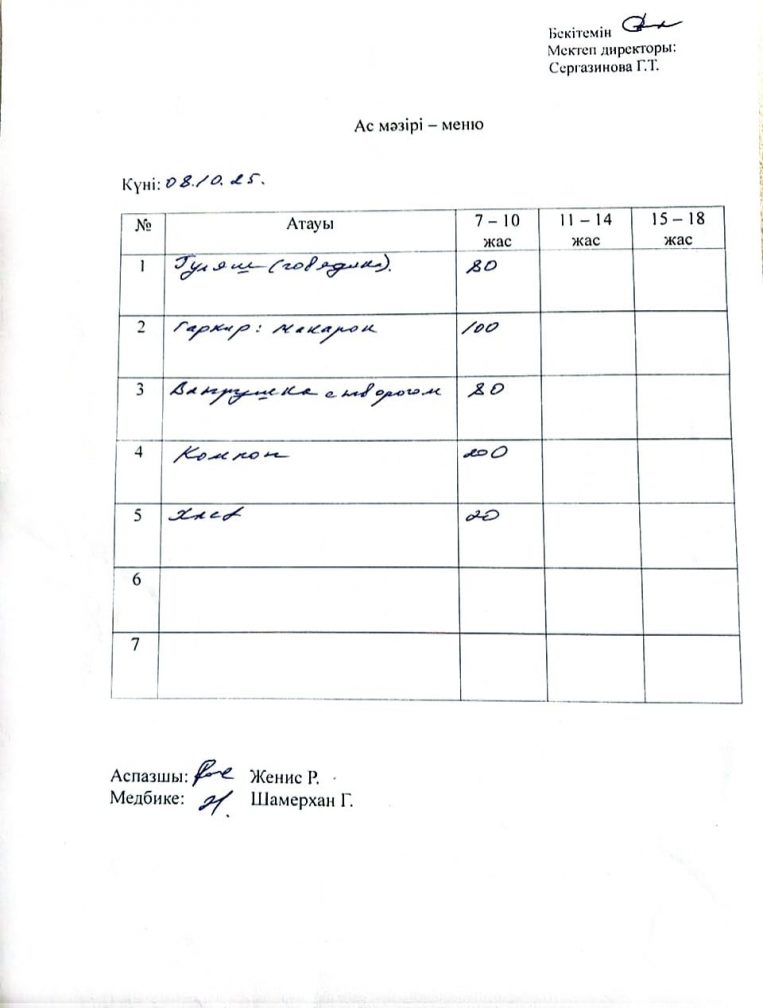 Бекітемін
Мектеп директоры:
Сергазинова Г.Т.
Ас мәзірі – меню
Күні: 08.10.25.
№ Атауы 7 – 10 жас 11 – 14 жас 15 – 18 жас
1 Гуляш (говядина). 80
2 Гарнир: макарон 100
3 Ватрушка с творогом 80
4 Компот 200
5 Хлеб 20
6
7
Аспазшы: Женис Р.
Медбике: Шамерхан Г.